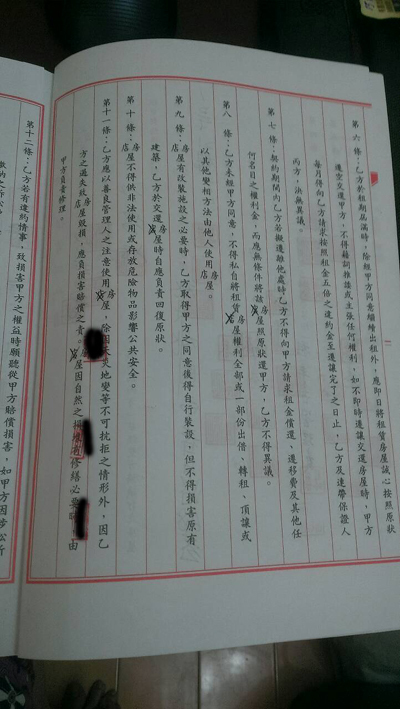 第六條：乙方於租期屆滿時，除經甲方同意繼續出租外，應即日將租賃房屋誠心按照原狀
遷空交還甲方，不得藉詞推諉或主張任何權利，如不即時遷讓交還房屋時，甲方
每月得向乙方請求按照租金五倍之違約金至遷讓完了之日止，乙方及連帶保證人
丙方，決無異議。
第七條：契約期間內乙方若擬遷離他處時乙方不得向甲方請求租金償還、遷移費及其他任
何名目之權利金，而應無條件將該房屋照原狀還甲方，乙方不得異議。
第八條：乙方未經甲方同意，不得私自將租賃房屋權利全部或一部份出借、轉租、頂讓或
以其他變相方法由他人使用房店屋。
第九條：房店屋有改裝施設之必要時，乙方取得甲方之同意後得自行裝設，但不得損害原有
建築，乙方於交還房屋時自應負責回復原狀。
第十條：房店屋不得供非法使用或存放危險物品影響公共安全。
第十一條：乙方應以善良管理人之注意使用房屋，除因天災地變等不可抗拒之情形外，因乙
方之過失致房店屋毀損，應負損害賠償之責。房屋因自然之損壞有修繕必要時，由
甲方負責修理。
第十二條：乙方若有違約情事，致損害甲方之權益時願聽從甲方賠償損害，如甲方因涉訟所